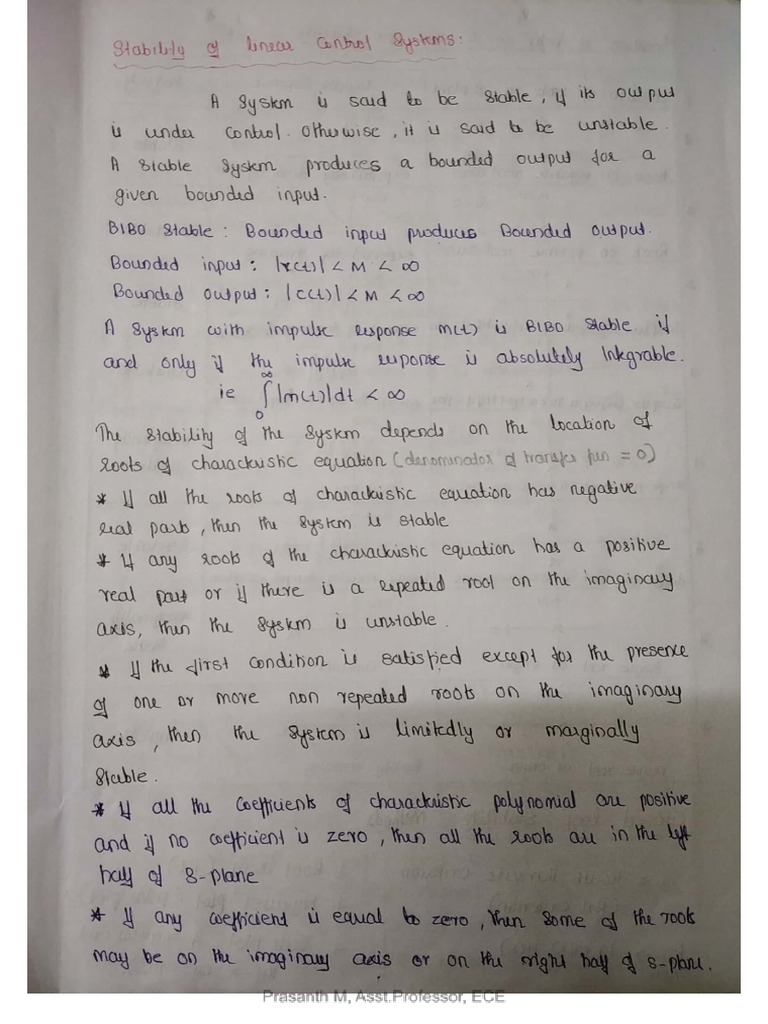 Stability of linear Control Systems:
A System is said to be Stable, if its output
is under control. Otherwise, it is said to be unstable.
A Stable System produces a bounded output for a
given bounded input.
BIBO Stable: Bounded input produces Bounded output.
Bounded input: |r(t)| < M < ∞
Bounded output: |c(t)| < M < ∞
A System with impulse response m(t) is BIBO Stable if
and only if the impulse response is absolutely Integrable.
ie ∫₀^∞ |m(t)|dt < ∞
The Stability of the System depends on the location of
roots of characteristic equation (denominator of transfer fun = 0)
* If all the roots of characteristic equation has negative
real parts, then the System is stable
* If any roots of the characteristic equation has a positive
real part or if there is a repeated root on the imaginary
axis, then the System is unstable.
* If the first condition is satisfied except for the presence
of one or more non repeated roots on the imaginary
axis, then the System is limitedly or marginally
Stable.
* If all the Coefficients of characteristic polynomial are positive
and if no coefficient is zero, then all the roots are in the left
half of S-plane
* If any coefficient is equal to zero, then Some of the roots
may be on the imaginary axis or on the right half of s-plane.
Prasanth M, Asst.Professor, ECE